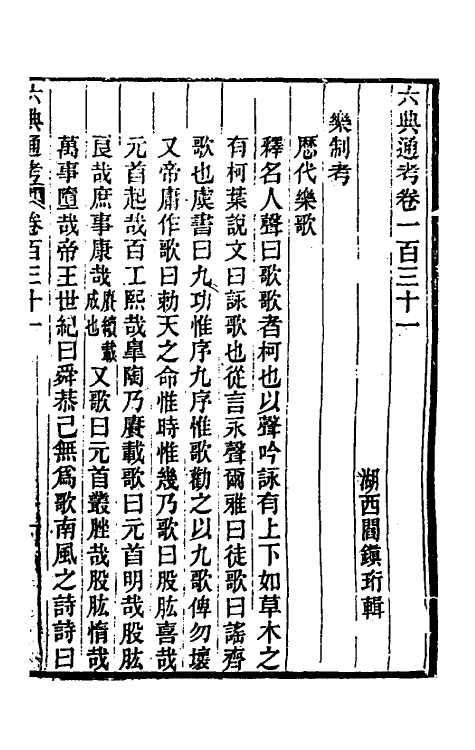 六典通考卷一百三十一
湖西閻鎭珩輯
樂制考
歷代樂歌
釋名人聲曰歌歌者柯也以聲吟詠有上下如草木之
有柯葉說文曰詠歌也從言永聲爾雅曰徒歌曰謠齊
歌也虞書曰九功惟序九序惟歌勸之以九歌俾勿壞
又帝庸作歌曰勅天之命惟時惟幾乃歌曰股肱喜哉
元首起哉百工熙哉臯陶乃賡載歌曰元首明哉股肱
良哉庶事康哉賡續載成也又歌曰元首叢脞哉股肱惰哉
萬事墮哉帝王世紀曰舜恭己無爲歌南風之詩詩曰
六典通考 卷百三十一